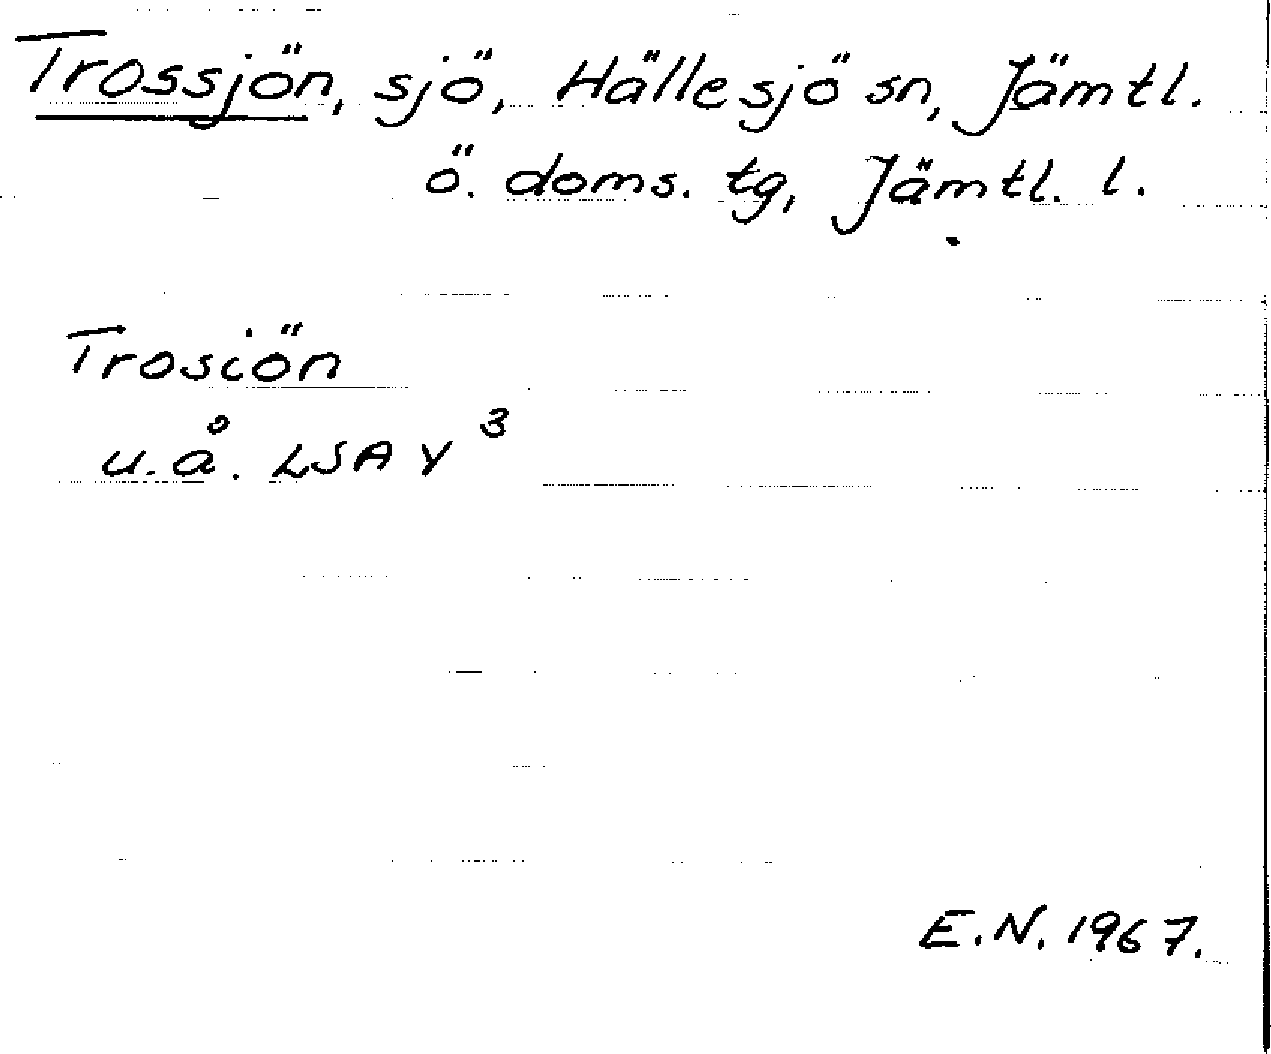 Trossjön, sjö, Hällesjö sn, Jämtl.
ö. doms. tg, Jämtl. l.
Trosiön
u.å. LSA Y 3
E.N. 1967.